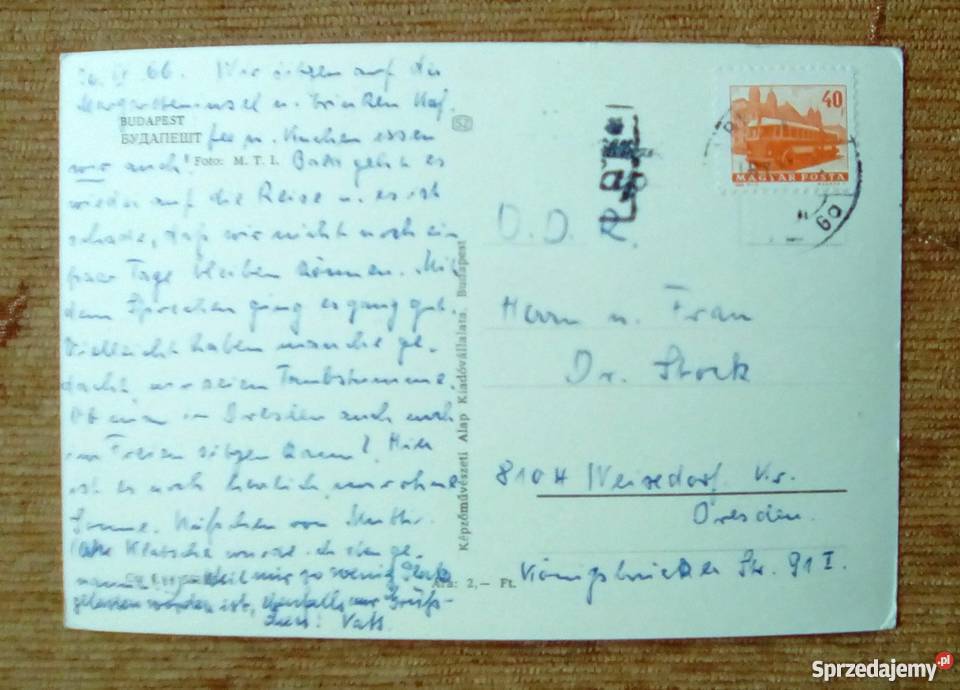 66. Wir sitzen auf der
Margareteninsel u. trinken Kaf-
BUDAPEST
БУДАПЕШТ
fee u. Kuchen essen
wir auch! Bald geht es
Foto: M. T. I.
wieder auf die Reise u. es ist
schade, daß wir nicht noch ein
paar Tage bleiben können. Mit
dem Sprechen ging es ganz gut.
Vielleicht haben manche ge-
dacht, wir seien Taubstumme.
Ob man in Dresden auch noch
im Freien sitzen kann? Hier
ist es noch herrlich, nur ohne
Sonne. Küßchen von
Klatsche wurde ich eben ge-
weil mir so wenig Platz
gelassen worden ist, ebenfalls nur Grüß-
chen: Vati
52
Képzőművészeti Alap Kiadóvállalata, Budapest
Ára: 2,— Ft.
40
MAGYAR POSTA
D. D. R.
Herrn u. Frau
Dr. Stock
8104 Weixdorf Kr.
Dresden.
Königsbrücker Str. 91 I.
Sprzedajemy.pl